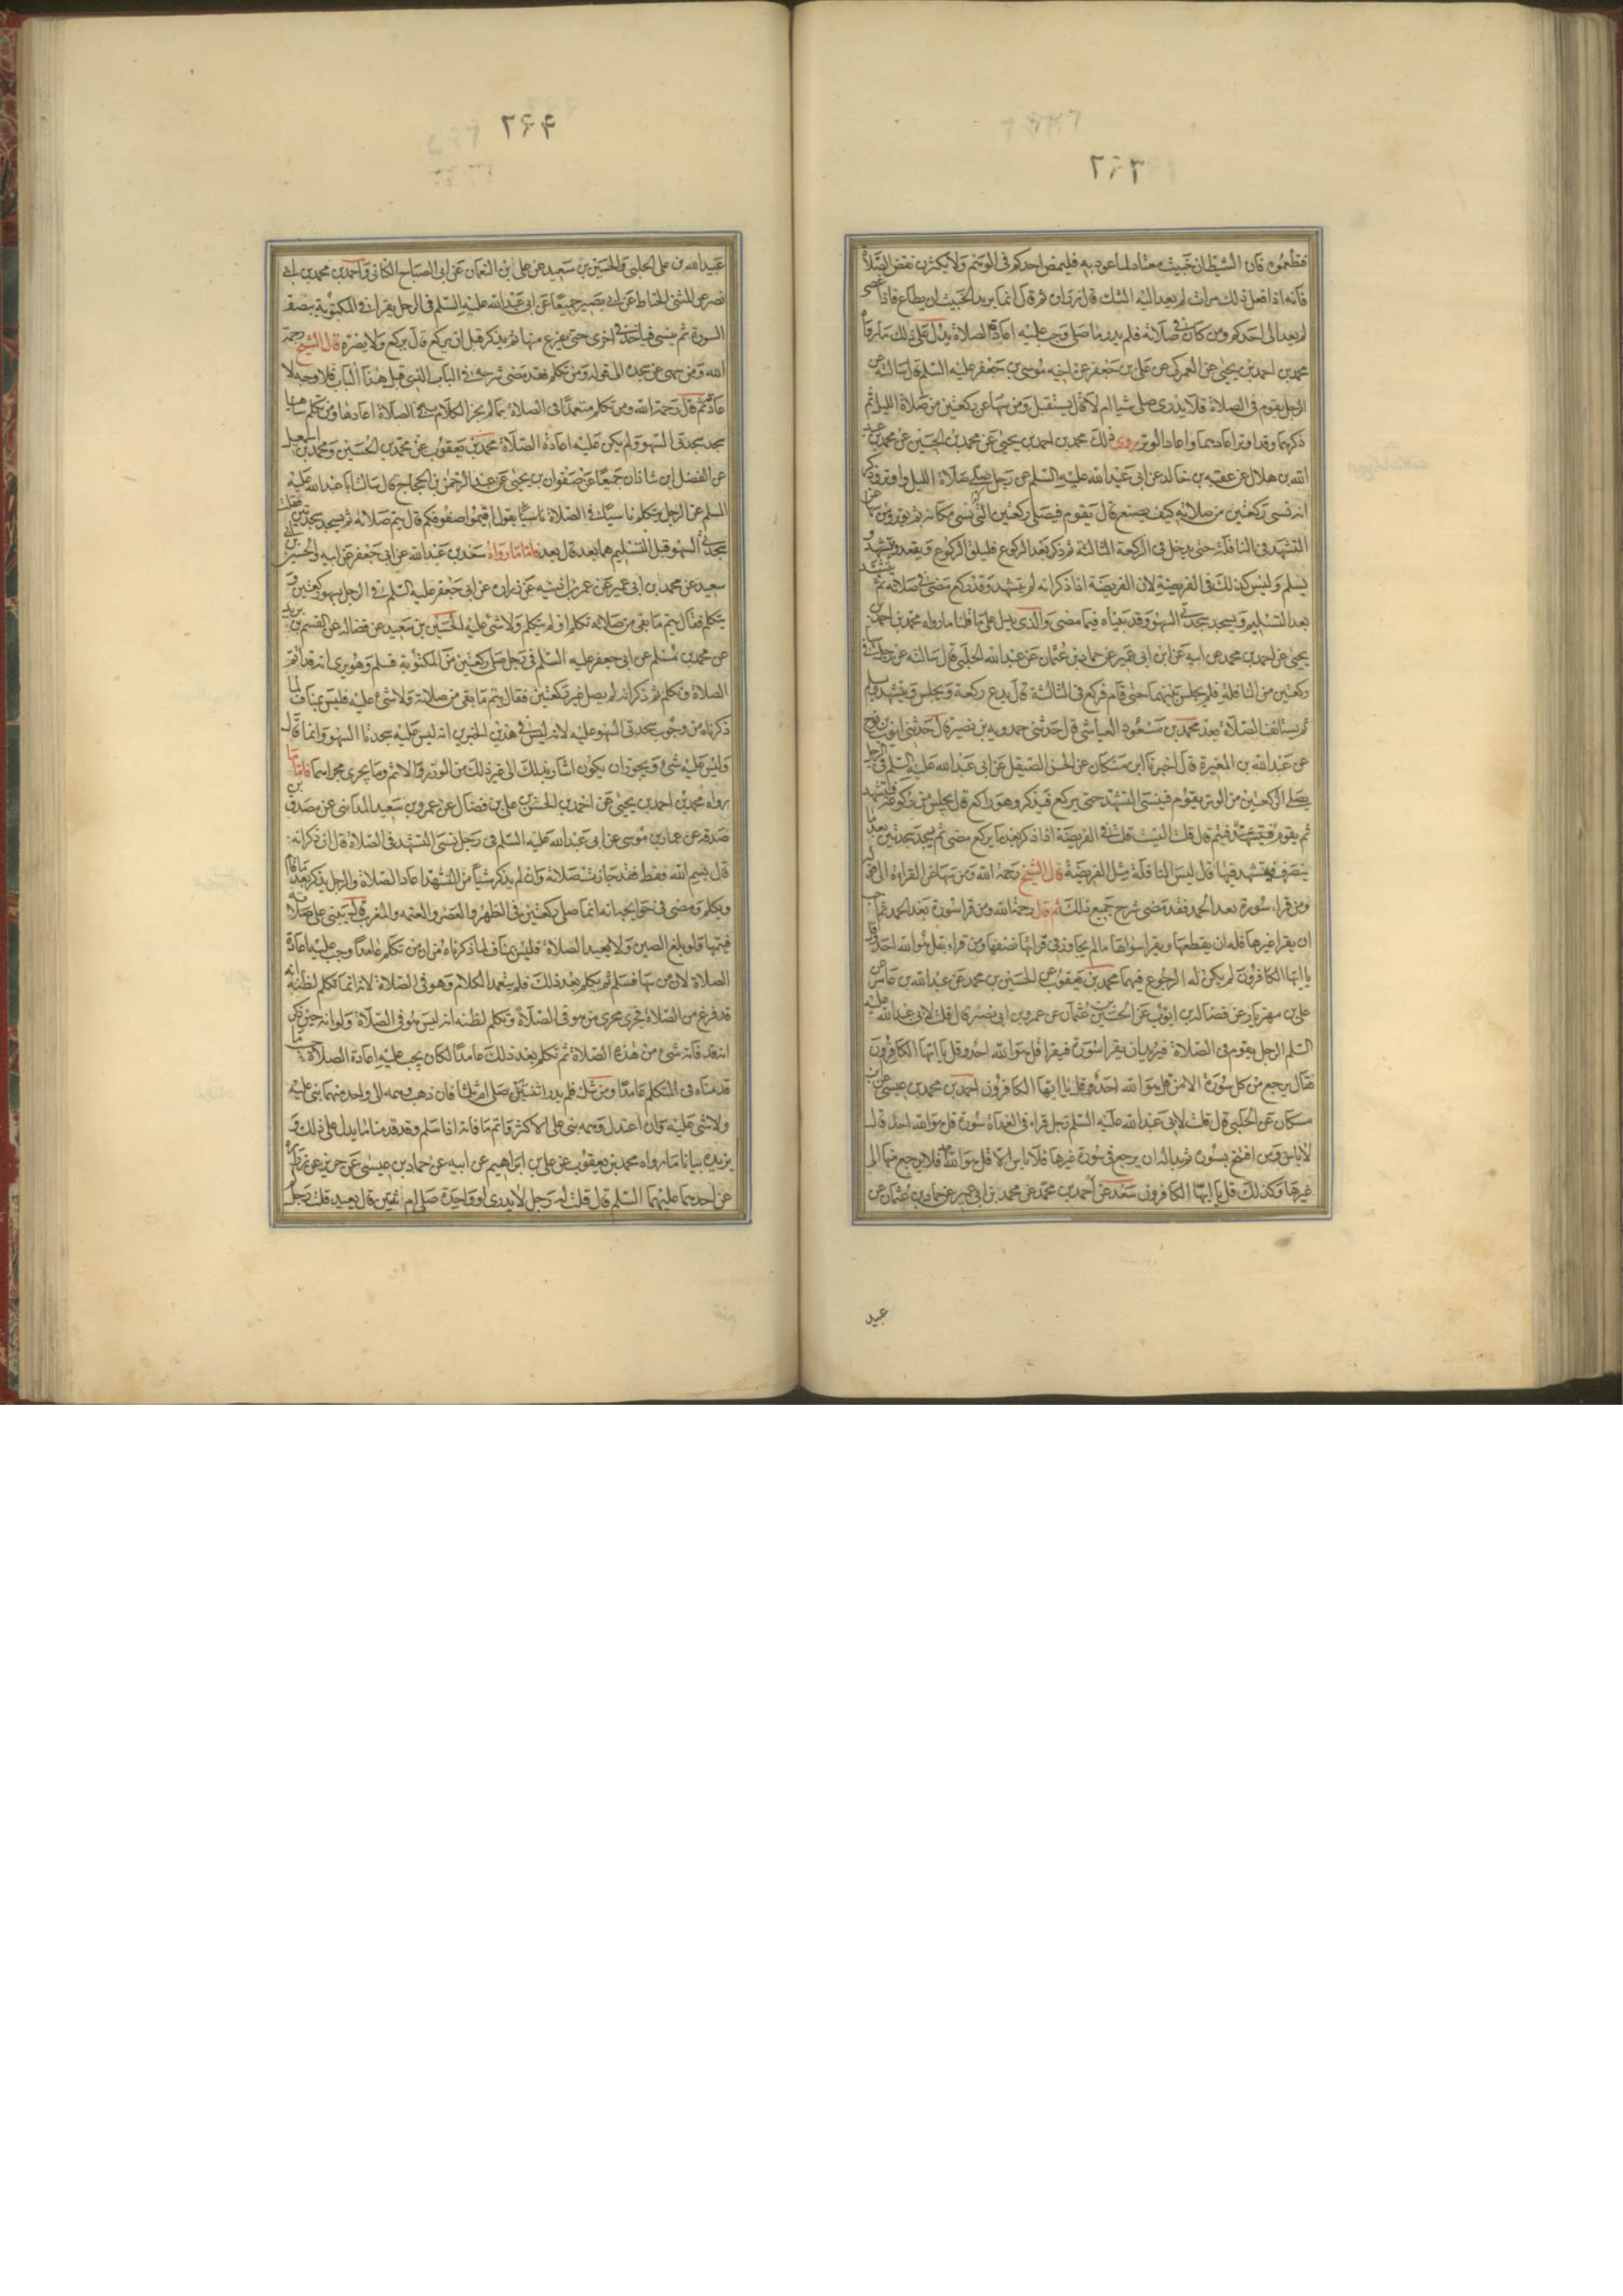 ٢٦٣
فتطمعوه فان الشيطان خبيث معتاد لما عود به فليمض احدكم في الوهم ولا يكثرن نقض الصلاة
فانه اذا فعل ذلك مرات لم يعد اليه الشك قال زرارة ثم قال انما يريد الخبيث ان يطاع فاذا عصى
لم يعد الى احدكم ومن كان في صلاته فلم يدر ما صلى وجب عليه اعادة الصلاة يدل على ذلك ما رواه
محمد بن احمد بن يحيى عن العمركي عن علي بن جعفر عن اخيه موسى بن جعفر عليه السلم قال سالته عن
الرجل يقوم في الصلاة فلا يدري صلى شيا ام لا قال يستقبل ومن سها عن ركعتين من صلاة الليل ثم
ذكرهما وقد اوتر اعادهما واعاد الوتر روى ذلك محمد بن احمد بن يحيى عن محمد بن الحسين عن محمد بن عبد
الله بن هلال عن عقبة بن خالد عن ابي عبد الله عليه السلم عن رجل صلى صلاة الليل واوتر وذكر
انه نسي ركعتين من صلاته كيف يصنع قال يقوم فيصلي ركعتين التي نسي مكانه ثم يوتر ومن سها عن
التشهد في النافلة حتى يدخل في الركعة الثالثة ثم ذكر بعد الركوع فليلق الركوع ويقعد ويتشهد و
يسلم وليس كذلك في الفريضة لان الفريضة اذا ذكر انه لم يتشهد وقد ركع مضى في صلاته ثم يتشهد
بعد التسليم ويسجد سجدتي السهو وقد بيناه فيما مضى والذي يدل على ما قلنا ما رواه محمد بن احمد بن
يحيى عن احمد بن محمد عن ابيه عن ابن ابي عمير عن حماد بن عثمان عن عبد الله الحلبي قال سالته عن رجل سها في
ركعتين من النافلة فلم يجلس بينهما حتى قام فركع في الثالثة قال يدع ركعة ويجلس ويتشهد ويسلم
ثم يستانف الصلاة بعد محمد بن مسعود العياشي قال حدثني حمدويه بن نصير قال حدثني ايوب بن نوح
عن عبد الله بن المغيرة قال اخبرنا ابن مسكان عن الحسن الصيقل عن ابي عبد الله عليه السلم في الرجل
يصلي الركعتين من الوتر يقوم فينسى التشهد حتى يركع فيذكر وهو راكع قال يجلس من ركوعه فيتشهد
ثم يقوم فيتم قال قلت اليس قلت في الفريضة اذا ذكر بعد ما يركع مضى ثم يسجد سجدتين بعد ما
ينصرف فيتشهد فيها قال ليس النافلة مثل الفريضة قال الشيخ رحمه الله ومن سها عن القراءة الى قوله
ومن قراء سورة بعد الحمد فقد مضى شرح جميع ذلك ثم قال رحمه الله ومن قرا سورة بعد الحمد ثم احب
ان يقرا غيرها فله ان يقطعها ويقرا سواها ما لم يجاوز في قراتها نصفها ومن قراء بقل هو الله احد وقل
يا ايها الكافرون لم يكن له الرجوع فيهما محمد بن يعقوب عن الحسين بن محمد عن عبد الله بن عامر عن
علي بن مهزيار عن فضالة بن ايوب عن الحسين بن عثمان عن عمرو بن ابي نصر قال قلت لابي عبد الله عليه
السلم الرجل يقوم في الصلاة فيريد ان يقرا سورة فيقرا قل هو الله احد وقل يا ايها الكافرون
فقال يرجع من كل سورة الا من قل هو الله احد وقل يا ايها الكافرون احمد بن محمد بن عيسى عن ابن
مسكان عن الحلبي قال قلت لابي عبد الله عليه السلم رجل قراء في الغداة سورة قل هو الله احد قال
لا باس ومن افتتح بسورة ثم بدا له ان يرجع في سورة غيرها فلا باس الا قل هو الله فلا يرجع منها الى
غيرها وكذلك قل يا ايها الكافرون سعد عن احمد بن محمد عن محمد بن ابي عمير عن حماد بن عثمان عن
عبيد
٢٦٤
عبيد الله بن علي الحلبي والحسين بن سعيد عن علي ابن النعمان عن ابي الصباح الكناني واحمد بن محمد بن ابي
نصر عن المثنى الحناط عن ابي بصير جميعا عن ابي عبد الله عليه السلم في الرجل يقرا في المكتوبة بنصف
السورة ثم ينسى فياخذ في اخرى حتى يفرغ منها ثم يذكر قبل ان يركع قال يركع ولا يضره قال الشيخ رحمه
الله ومن سهى عن سجدة الى قوله ومن تكلم فقد مضى شرحه في الباب الذي قبل هذا الباب فلا وجه لا
عادته ثم قال رحمه الله ومن تكلم متعمدا في الصلاة بما لم يجز الكلام به في الصلاة اعادها ومن تكلم ساهيا
سجد سجدتي السهو ولم يكن عليه اعادة الصلاة محمد بن يعقوب عن محمد بن الحسين ومحمد بن اسمعيل
عن الفضل ابن شاذان جميعا عن صفوان بن يحيى عن عبد الرحمن بن الحجاج قال سالت ابا عبد الله عليه
السلم عن الرجل يتكلم ناسيا في الصلاة ناسيا يقول اقيموا صفوفكم قال يتم صلاته ثم يسجد سجدتين فقلت
سجدتي السهو قبل التسليم هما بعد قال بعد فاما ما رواه سعد بن عبد الله عن ابي جعفر عن ابيه والحسين بن
سعيد عن محمد بن ابي عمير عن عمر بن اذينة عن زرارة عن ابي جعفر عليه السلم في الرجل يسهو ركعتين و
يتكلم فقال يتم ما بقي من صلاته تكلم او لم يتكلم ولا شئ عليه الحسين بن سعيد عن فضالة عن القسم بن بريد
عن محمد بن مسلم عن ابي جعفر عليه السلم في رجل صلى ركعتين من المكتوبة فسلم وهو يرى انه قد اتم
الصلاة وتكلم ثم ذكر انه لم يصل غير ركعتين فقال يتم ما بقي من صلاته ولا شئ عليه فليس بمناف لما
ذكرناه من وجوب سجدتي السهو عليه لانه ليس في هذين الخبرين انه ليس عليه سجدتا السهو وانما قال
وليس عليه شئ ويجوز ان يكون اشار بذلك الى غير ذلك من الوزر والاثم وما يجري مجراهما فاما ما
رواه محمد بن احمد بن يحيى عن احمد بن الحسن بن علي بن فضال عن عمرو بن سعيد المدايني عن مصدق بن
صدقه عن عمار بن موسى عن ابي عبد الله عليه السلم في رجل نسى التشهد في الصلاة قال ان ذكر انه
قال بسم الله فقط فقد جازت صلاته وان لم يذكر شيا من التشهد اعاد الصلاة والرجل يذكر بعد ما قام
ويكلم ومضى في حوايجه انه انما صلى ركعتين في الظهر والعصر والعتمه والمغرب قال يبنى على صلاته
فيتمها ولو بلغ الصين ولا يعيد الصلاة فليس بمناف لما ذكرناه من ان من تكلم عامدا وجب عليه اعادة
الصلاة لان من سها فسلم ثم تكلم بعد ذلك فلم يتعمد الكلام وهو في الصلاة لانه انما تكلم لظنه انه
قد فرغ من الصلاة فجرى مجرى من هو في الصلاة وتكلم لظنه انه ليس هو في الصلاة ولو انه حين ذكر
انه قد فاته شئ من هذه الصلاة ثم تكلم بعد ذلك عامدا لكان يجب عليه اعادة الصلاة حسب ما
قدمناه في المتكلم عامدا ومن شك فلم يدر اثنتين صلى ام ثلثا فان ذهب وهمه الى واحده منهما بنى عليه
ولا شئ عليه وان اعتدل وهمه بنى على الاكثر واتم ما فاته اذا سلم وقد قدمنا ما يدل على ذلك و
يزيده بيانا ما رواه محمد بن يعقوب عن علي بن ابراهيم عن ابيه عن حماد بن عيسى عن حريز عن زرارة
عن احدهما عليهما السلم قال قلت له رجل لا يدري اواحدة صلى ام ثنتين قال يعيد قلت رجل